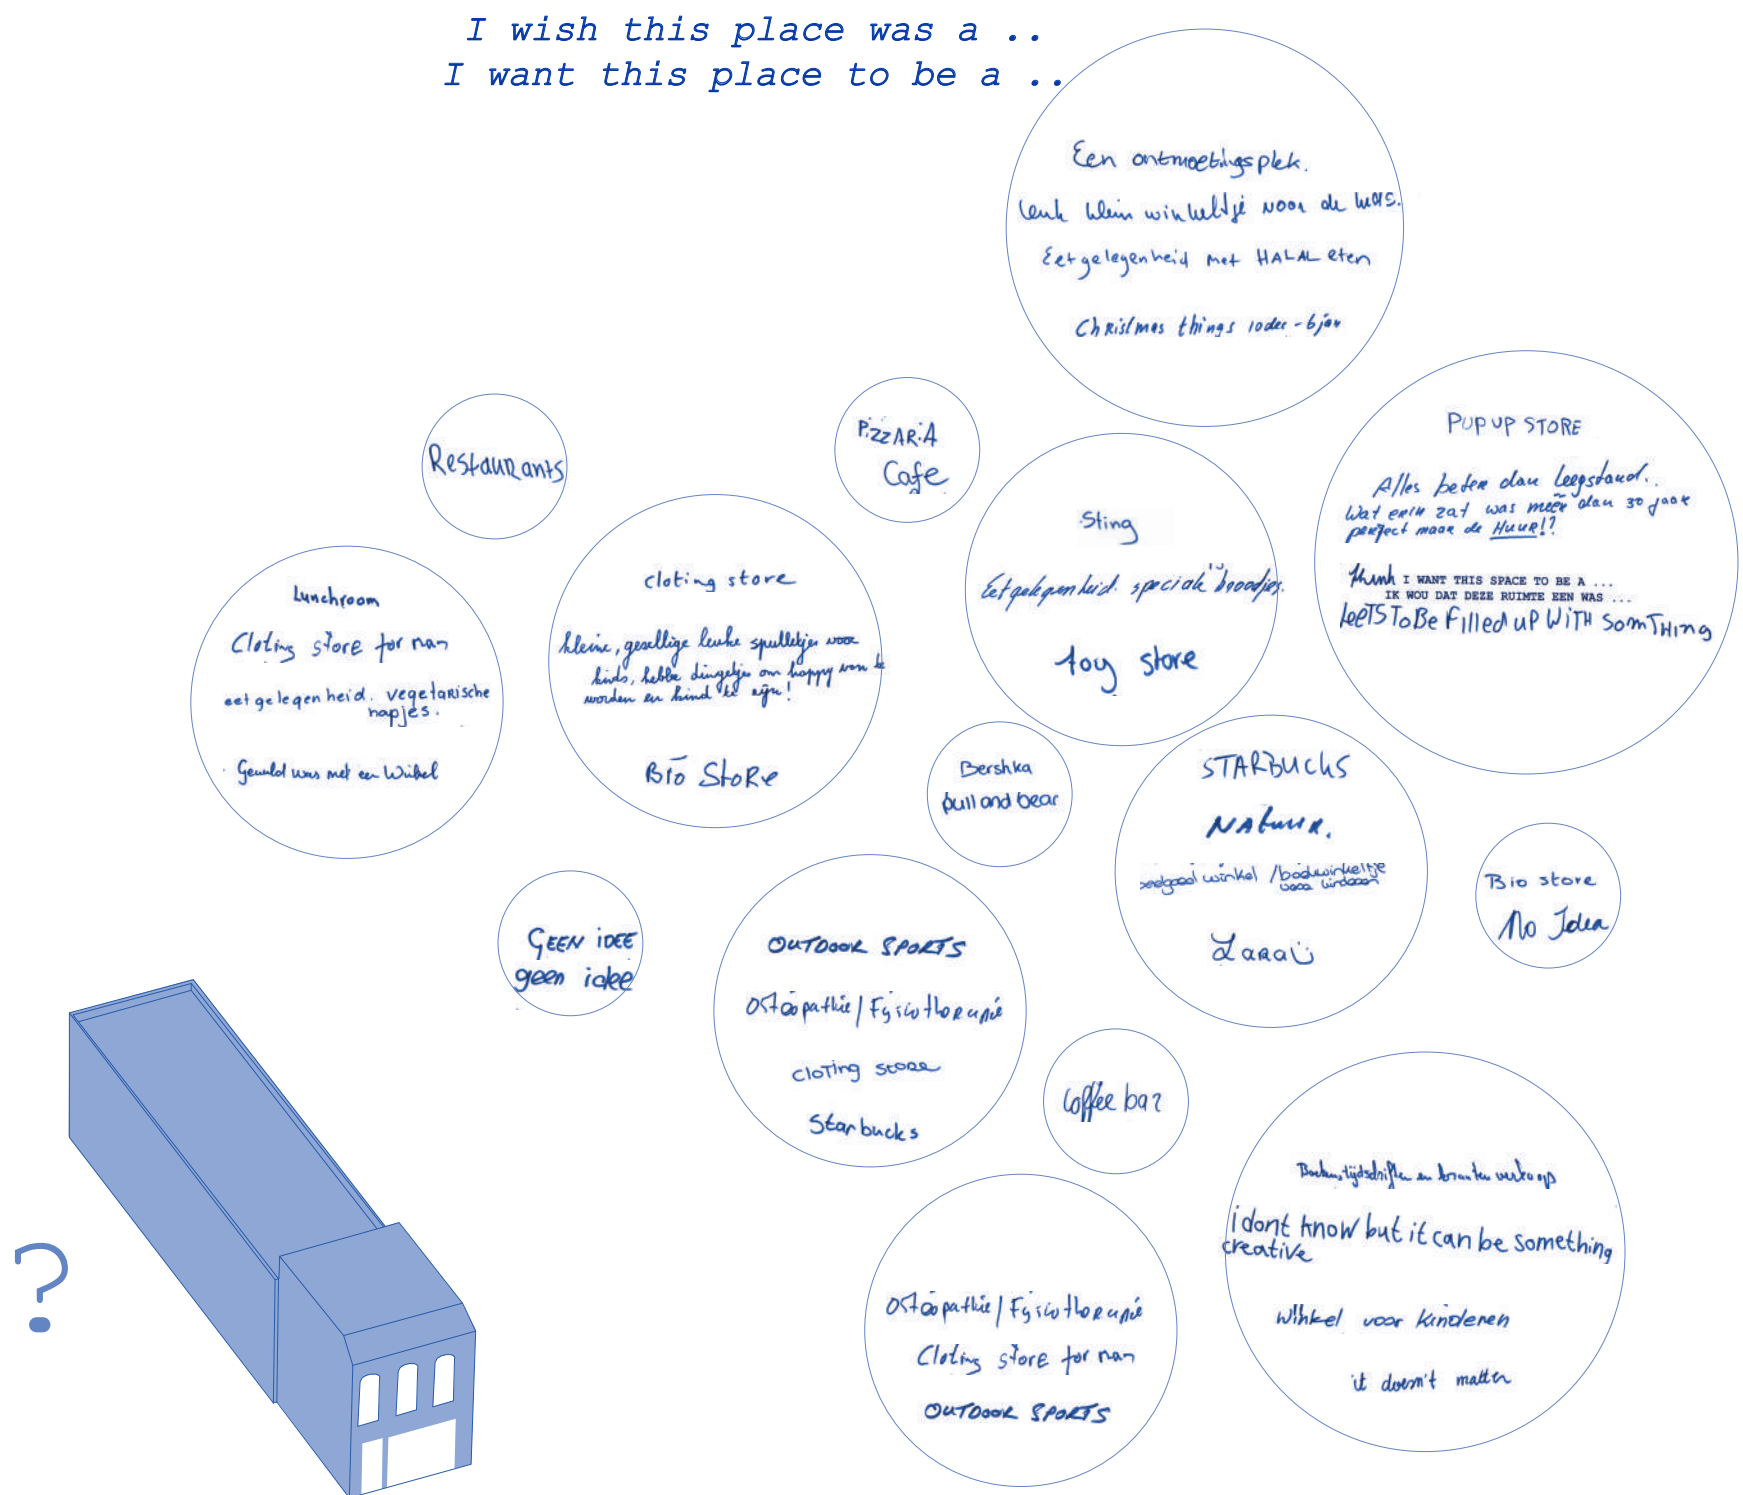 I wish this place was a ..
I want this place to be a ..
Een ontmoetingsplek.
leuk klein winkeltje voor de
Eetgelegenheid met HALAL eten
Christmas things 10dec - 6jan
Restaurants
PizzARiA
Cafe
PUPUP STORE
Alles beter dan leegstand..
Wat erin zat was meer dan 30 jaar
perfect maar de HUUR!?
Think I WANT THIS SPACE TO BE A ...
IK WOU DAT DEZE RUIMTE EEN WAS ...
leeTS To Be Filled uP WiTH SomTHing
Sting
Eetgelegenheid. speciale broodjes.
toy store
cloting store
kleine, gesellige leuke spulletjes voor
kinds, hebbe dingetjes om happy van te
worden en kind te zijn!
Bio StoRe
Lunchroom
Cloting store for man
eetgelegenheid. vegetarische
hapjes.
Gevuld was met een Winkel
Bershka
pull and bear
STARBUCKS
NAtuur.
winkel / badwinkeltje
voor kinderen
Zara
Bio store
No Idea
GEEN iDEE
geen idee
OUTDOOR SPORTS
Osteopathie / Fysiotherapie
cloTing store
Starbucks
Coffee bar
Boeken, tijdschriften en kranten verkoop
i dont know but it can be something
creative
Winkel voor kinderen
it doesn't matter
Osteopathie / Fysiotherapie
Cloting store for man
OUTDOOR SPORTS
?